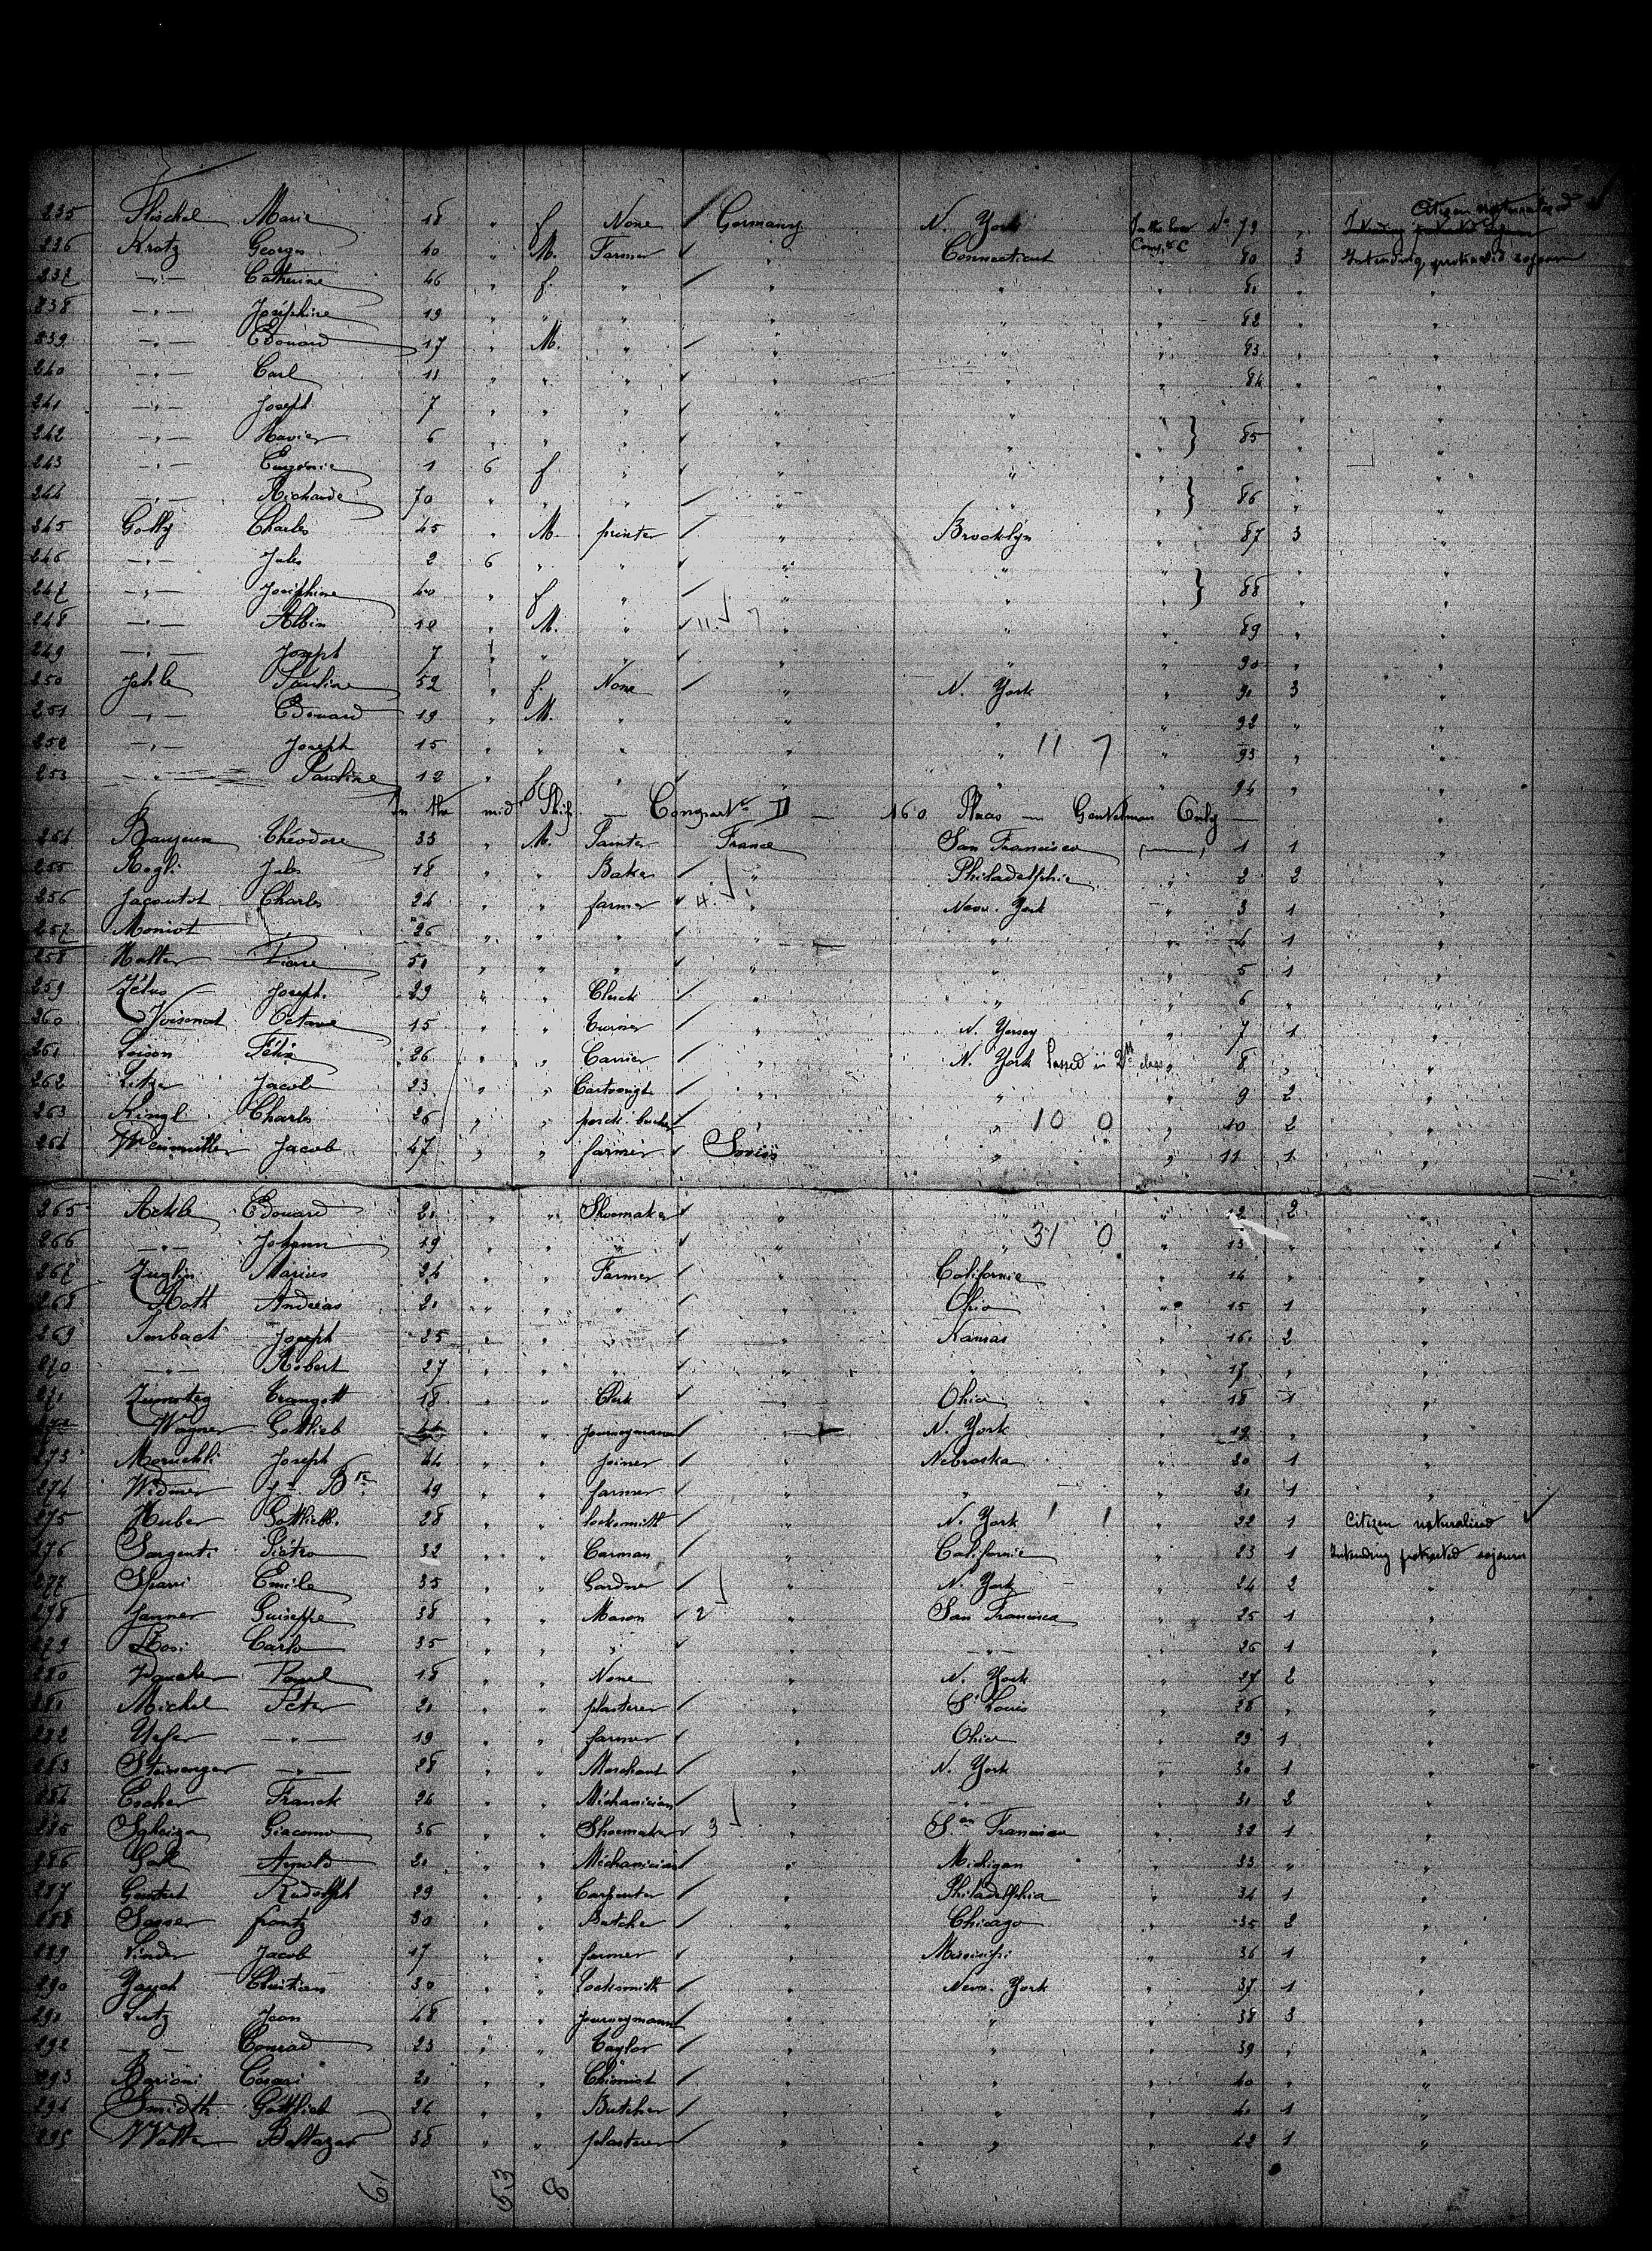 Citizen naturalised
235 Marie 18 " f. None ✓ Germany N. York In the low No 79 " Intending protracted sojourn
Comp. & C
236 Kratz Georges 40 " M. Farmer ✓ " Connecticut 80 3 Intending protracted sojourn
237 —"— Catherine 46 " f. " ✓ " " " 81 " "
238 —"— Joséphine 19 " " " " " " 82 " "
239 —"— Edouard 17 " M. " ✓ " " " 83 " "
240 —"— Carl 11 " " " ✓ " " " 84 " "
241 —"— Joseph 7 " " " ✓ " " " " "
242 —"— Xavier 6 " " " ✓ " " " } 85 " "
243 —"— Eugénie 1 6 f " ✓ " " " " " "
244 —"— Richarde 70 " " " ✓ " " " } 86 " "
245 Golly Charles 45 " M. printer ✓ " Brooklyn " 87 3 "
246 —"— Jules 2 6 " " ✓ " " " " "
247 —"— Joséphine 40 " f " ✓ " " " } 88 " "
248 —"— Albin 10 " M. " ✓ 11 ✓ 7 " " " 89 " "
249 —"— Joseph 7 " " " ✓ " " " 90 " "
250 Jehle Pauline 52 " f. None ✓ " N. York " 91 3 "
251 —"— Edouard 19 " M. " " " " 92 " "
252 —"— Joseph 15 " " " " " 11 7 " 93 " "
253 —"— Pauline 12 " f " ✓ " " " 94 " "
In the mid Ship — Compart No D — 160 Plaas — Gentelman Only —
254 Théodore 33 " M. Painter France San Francisco 1 1 "
255 Rogli Jules 18 " " Baker ✓ " Philadelphia " 2 2 "
256 Jacoutot Charles 24 " " farmer ✓ 4. ✓ " New. York " 3 1 "
257 Moniot 26 " " " ✓ " " " 4 1 "
258 Halter Pierre 51 " " " ✓ " " " 5 1 "
259 Joseph. 29 " " Clerck ✓ " " " 6 " "
260 Voisenat Octave 15 " " Turner ✓ " N. Yersey " 7 1 "
261 Loison Félix 26 " " Carrier ✓ " N. York Passed in 2nd class " 8 " "
262 Jacob 23 " " Cartwright ✓ " " 9 2 "
263 Kingl Charles 26 " " porck-bucher ✓ " " 10 0 " 10 2 "
264 Weinmuller Jacob 47 " " farmer ✓ Swiss " " 11 1 "
265 Edouard 21 " " Shoemaker ✓ " " " 12 2 "
266 —"— Johann 19 " " " ✓ " " 31 0 " 13 " "
267 Zuglin Marius 24 " " Farmer ✓ " California " 14 " "
268 Roth Andréas 21 " " " ✓ " Ohio " 15 1 "
269 Joseph 25 " " " ✓ " Kansas " 16 2 "
270 —"— Robert 27 " " " ✓ " " " 17 " "
271 Zumsteg Traugott 18 " " Clerk ✓ " Ohio " 18 1 "
272 Wagner Gottlieb " " Journeymann ✓ " N. York " 19 " "
273 Joseph 44 " " Joiner ✓ " Nebraska " 20 1 "
274 Widmer Jn Bte 49 " " farmer ✓ " " " 21 1 "
275 Huber Gottlieb. 28 " " locksmith ✓ " N. York 1 1 " 22 1 Citizen naturalised ✓
276 Sargenti Piétro 32 " " Carman ✓ " California " 23 1 Intending protracted sojourn
277 Emile 35 " " Gardner ✓ " N. York " 24 2 "
278 Janner Guiseppe 38 " " Mason ✓ 2 " San Francisco " 25 1 "
279 Carlo 35 " " " ✓ " —"— " 26 1 "
280 Paul 18 " " None " N. York " 27 2 "
281 Michel Peter 21 " " plasterer ✓ " St Louis " 28 " "
282 —"— 19 " " farmer ✓ " Ohio " 29 1 "
283 —"— 28 " " Merchant ✓ " N. York " 30 1 "
284 Escher Franck 24 " " Méchanician ✓ " —"— " 31 2 "
285 Giacomo 36 " " Shoemaker ✓ 3 " San Francisco " 32 1 "
286 Arnold 21 " " Méchanician ✓ " Michigan " 33 " "
287 Rudolph 29 " " Carpenter ✓ " Philadelphia " 34 1 "
288 frantz 30 " " Butcher ✓ " Chicago " 35 2 "
289 Linder Jacob 17 " " farmer ✓ " " 36 1 "
290 Christian 30 " " Locksmith ✓ " New. York " 37 1 "
291 Lutz Jean 48 " " Journeymann ✓ " " " 38 3 "
292 —"— Conrad 23 " " Taylor ✓ " " " 39 " "
293 Barioni Cesari 21 " " Chimist ✓ " " " 40 " "
294 Smidth Gottlieb 24 " " Butcher ✓ " " " 41 1 "
295 Walter Baltazar 38 " " plasterer ✓ " " " 42 1 "
61 53 8